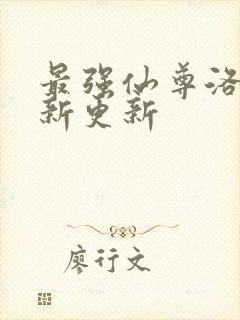 最强仙尊洛
新更新
廖行文